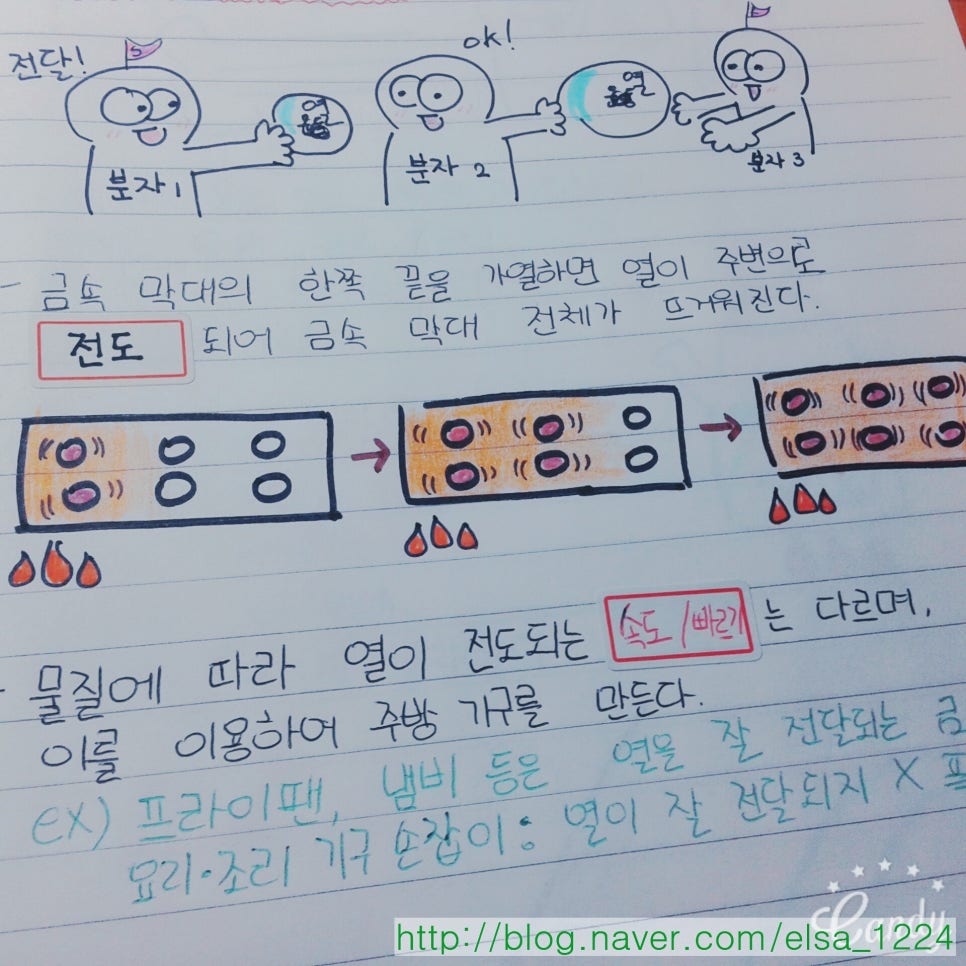 전달!
ok!
S
열
열
분자 1
분자 2
분자 3
- 금속 막대의 한쪽 끝을 가열하면 열이 주변으로
전도 되어 금속 막대 전체가 뜨거워진다.
- 물질에 따라 열이 전도되는 속도/빠르기 는 다르며,
이를 이용하여 주방 기구를 만든다.
ex) 프라이팬, 냄비 등은 열을 잘 전달되는 금
요리·조리 기구 손잡이: 열이 잘 전달되지 X 플
Candy
http://blog.naver.com/elsa_1224